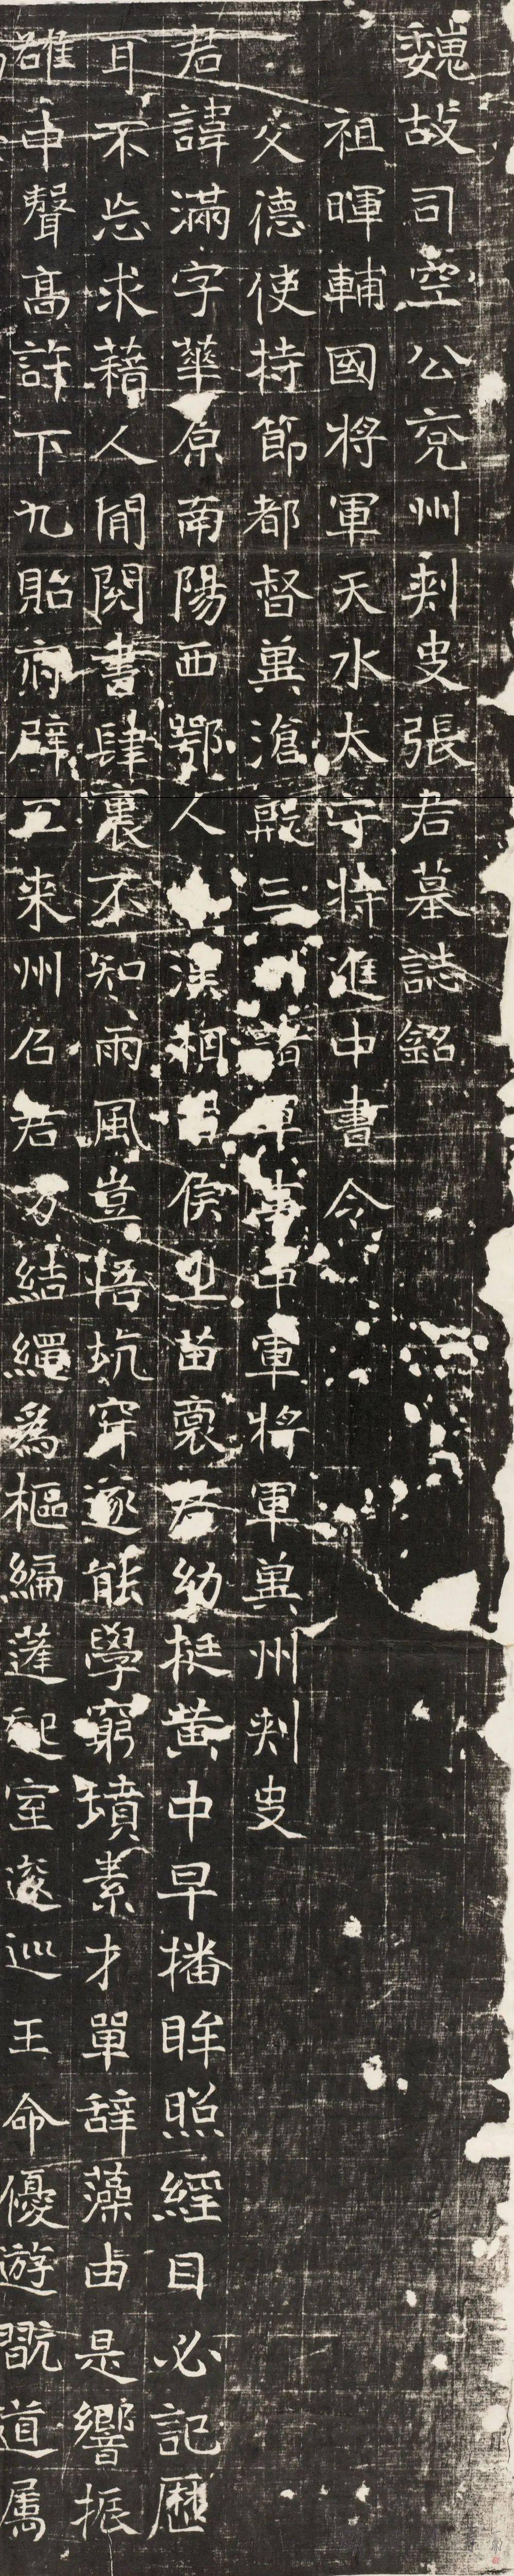 魏故司空公兗州刺史張君墓誌銘
祖暉輔國將軍天水太守特進中書令
父德使持節都督冀滄殷三州諸軍事中軍將軍冀州刺史
君諱滿字華原南陽西鄂人漢相侯之苗裔君幼挺黃中早播眸照經目必記歷
耳不忘求藉人間閱書肆裏不知雨風豈悟坑穽遂能學窮墳素才單辭藻由是響振
雒中聲高許下九貽府辟五來州召君方結繩為樞編蓬祀室逡巡王命優遊翫道屬